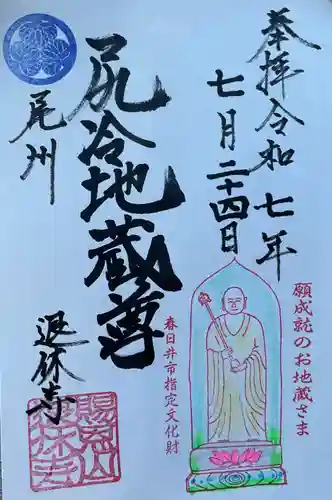 奉拝 令和七年
七月二十四日
願成就のお地蔵さま
春日井市指定文化財
尻冷地蔵尊
尾州
退休寺